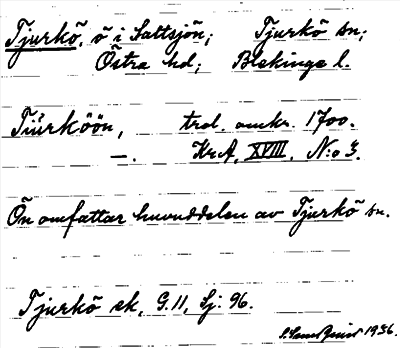 Tjurkö, ö i Saltsjön; Tjurkö sn;
Östra hd; Blekinge l.
Tiúrköön, trol. omkr. 1700.
—. KrA, XVIII, N:o 3.
Ön omfattar huvuddelen av Tjurkö sn.
Tjurkö sk, G.11, Sj: 96.
1936.